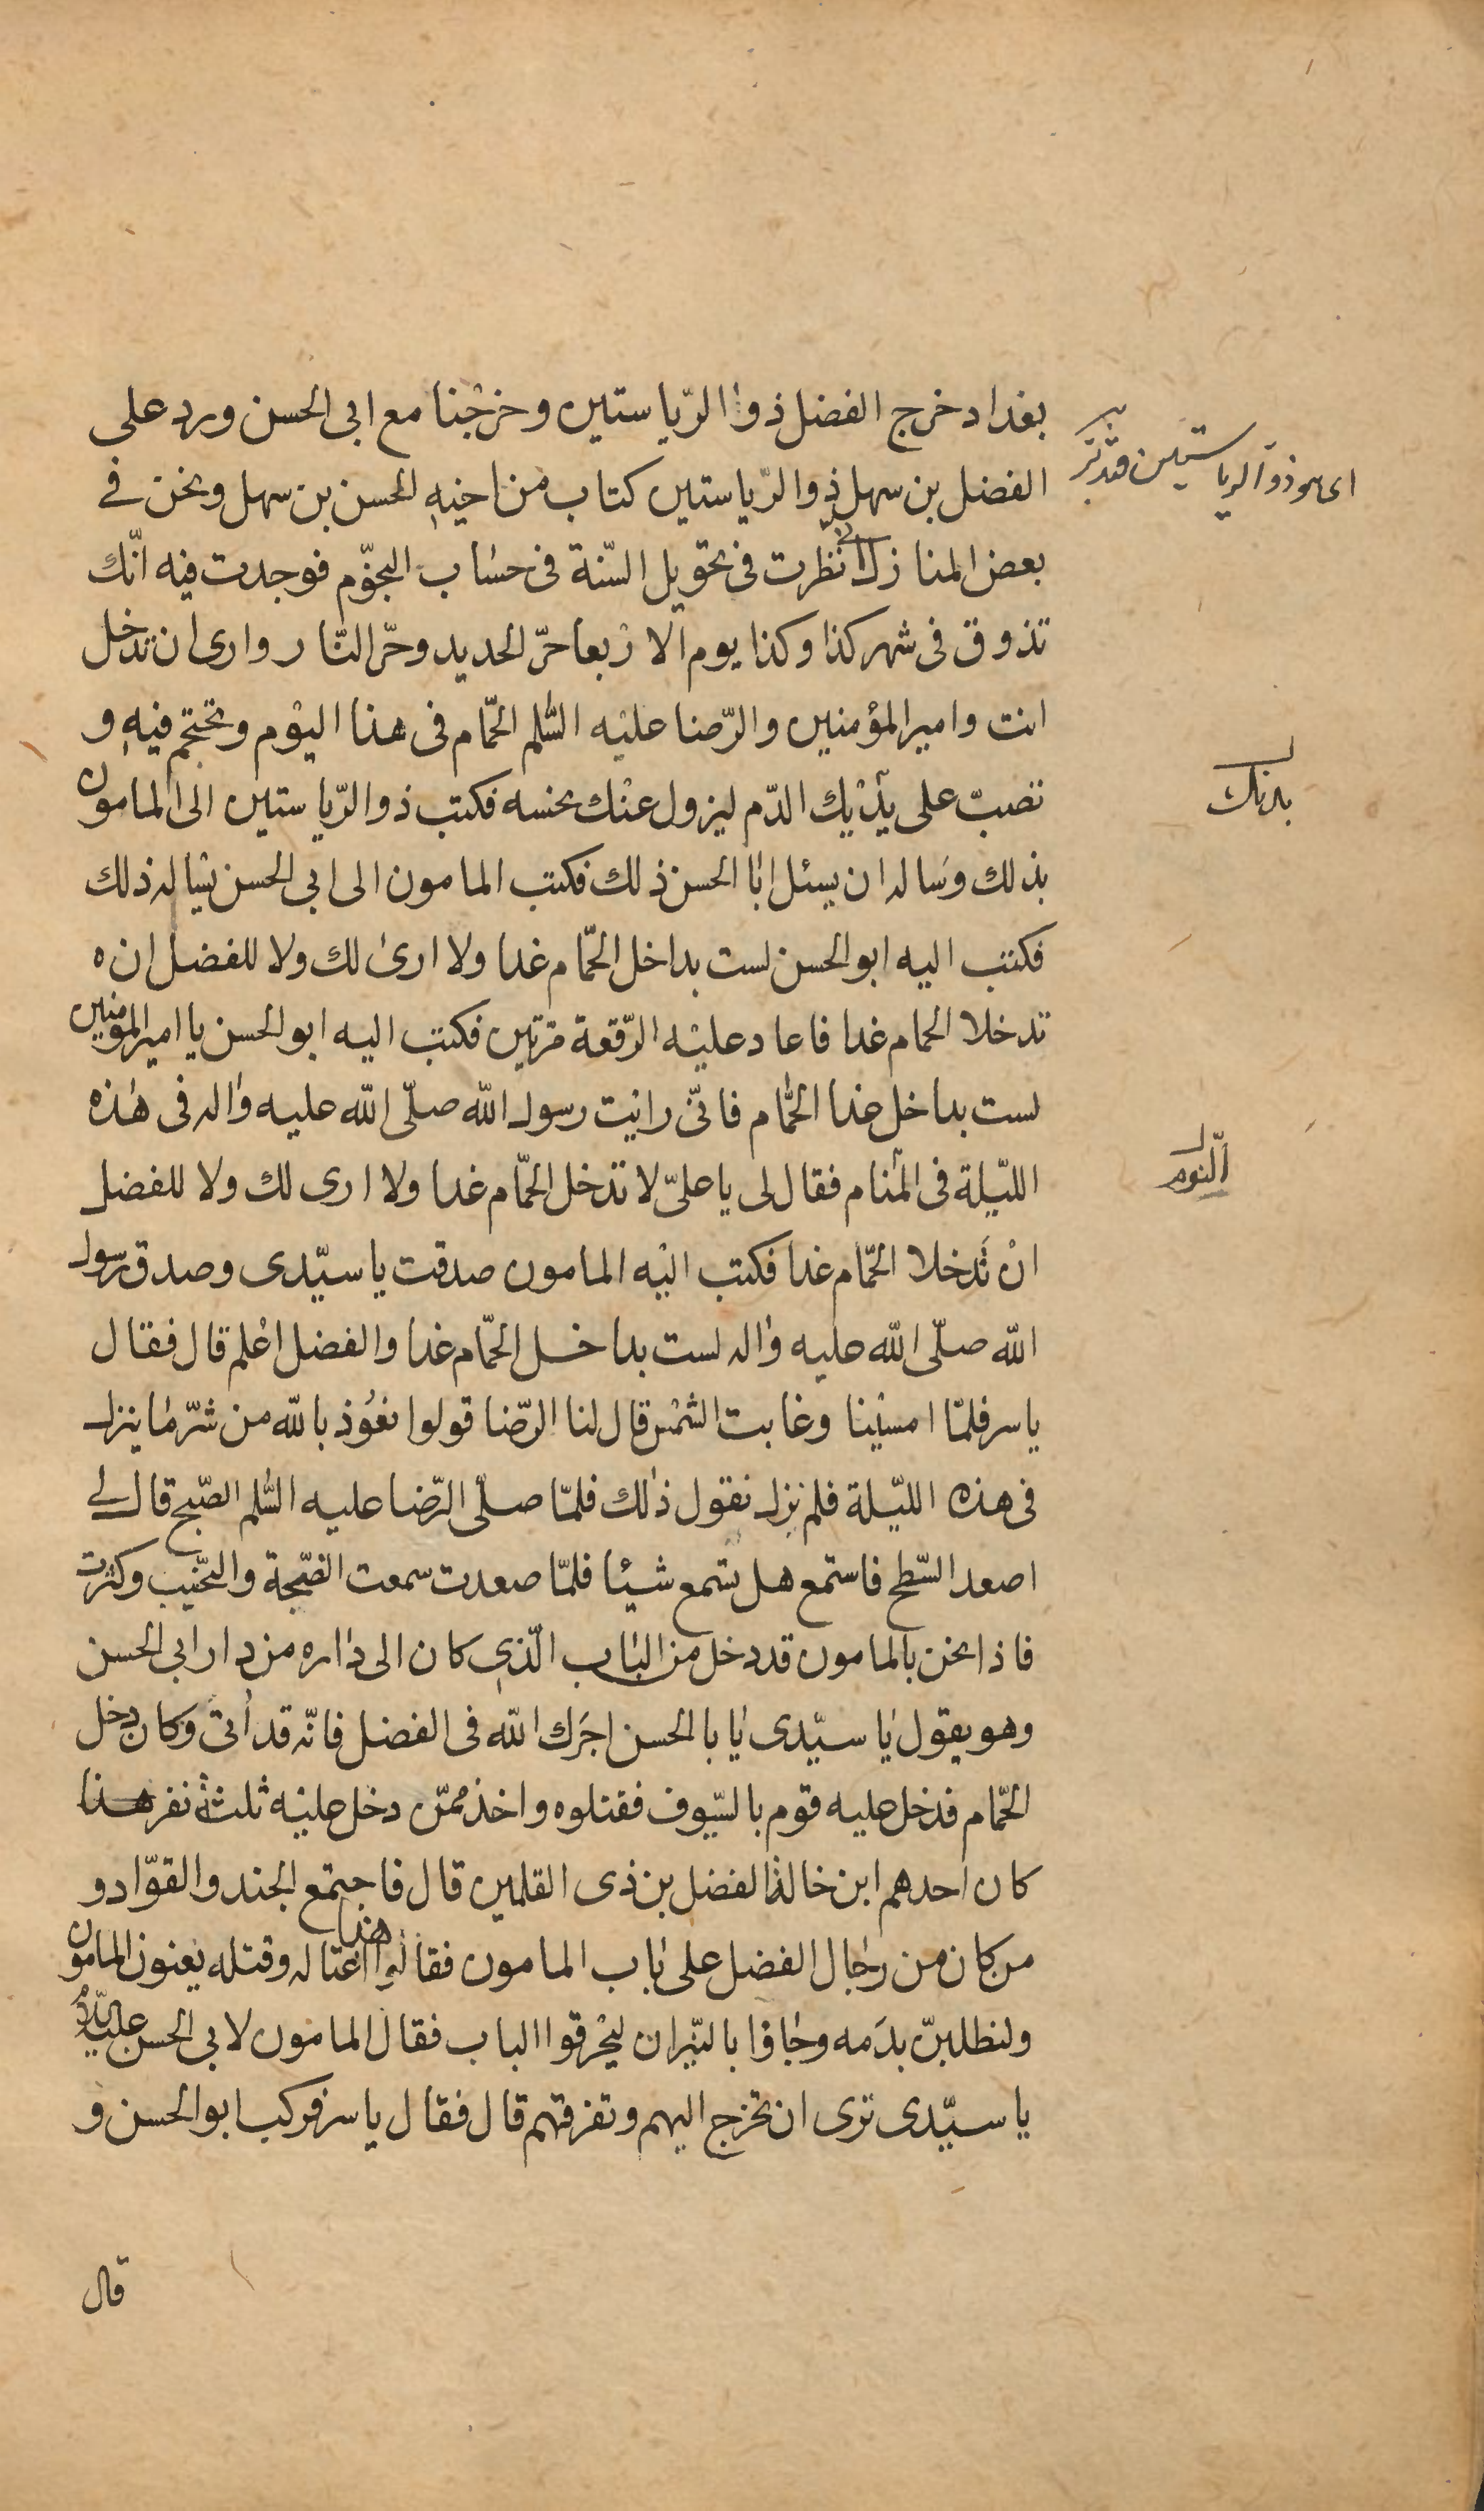 بغداد خرج الفضل ذوا الرّياستين وخرجْنا مع ابى الحسن ورد على
الفضل بن سهل ذوا الرّياستين كتاب من اخيه الحسن بن سهل ونحن فے
بعض المنازل انى نظرت فى تحويل السّنة فى حسٰاب النجوّم فوجدت فيه انّك
تذوق فى شهر كذا وكذا يوم الارْبعا حرّ الحديد وحرّ النّار وارى ان تدخل
انت وامير المؤمنين والرّضا عليْه السّلم الحمّام فى هذا اليوْم وتحتجم فيه و
تصبّ على يدَيْك الدّم ليزول عنْك نحسه فكتب ذو الرّياستين الى المامون
بذلك وسَاله ان يسئل ابٰا الحسن ذلك فكتب المامون الى ابى الحسن يسْاله ذلك
فكتب اليه ابو الحسن لست بداخل الحمّام غدا ولا ارىٰ لك ولا للفضل ان ه
تدخلا الحمام غدا فاعاد عليْه الرّقعة مرّتين فكتب اليه ابو الحسن يا امير المؤمنين
لست بداخل غدا الحمّام فانّى رايت رسول الله صلّى الله عليه واٰله فى هٰذه
اللّيلة فى المنام فقال لى يا علىّ لا تدخل الحمّام غدا ولا ارى لك ولا للفضل
انْ تَدخلا الحمّام غدا فكتب اليْه المامون صدقت يا سيّدى وصدق رسول
الله صلّى الله عليه واٰله لست بداخل الحمّام غدا والفضل اعْلم قال فقال
ياسر فلمّا امسيْنا وغابت الشمْس قال لنا الرّضا قولوا نعُوذ بالله من شرّ مٰا ينزل
فى هذه اللّيلة فلم نزل نقول ذٰلك فلمّا صلّى الرّضا عليه السّلم الصّبح قال لے
اصعد السّطح فاستمع هل تسْمع شيئا فلمّا صعدت سمعت الضّجة والنّحيب وكثرت
فاذا نحن بالمامون قد دخل من البٰاب الّذى كان الى دٰاره من دار ابى الحسن
وهو يقول يٰا سيّدى يٰا با الحسن اجَرك الله فى الفضل فانّه قد اُتى وكان دخل
الحمّام فدخل عليه قوم بالسّيوف فقتلوه واخذ ممّن دخل عليْه ثلثة نفر هذا
كان احدهم ابن خالة الفضل بن ذى القلمين قال فاجتمع الجند والقوّاد و
من كان من رجٰال الفضل على بٰاب المامون فقالوا هذا اغتاله وقتله يعنون المامون
ولنطلبنّ بدَمه وجٰاؤا بالنّيران ليحْرقوا الباب فقال المامون لابى الحسن عليه السّلم
يا سيّدى ترى ان تخرج اليهم وتفرقهم قال فقال ياسر فركب ابو الحسن و
قال
اى هو ذو الرياستين فتدبر
بدنك
النوم